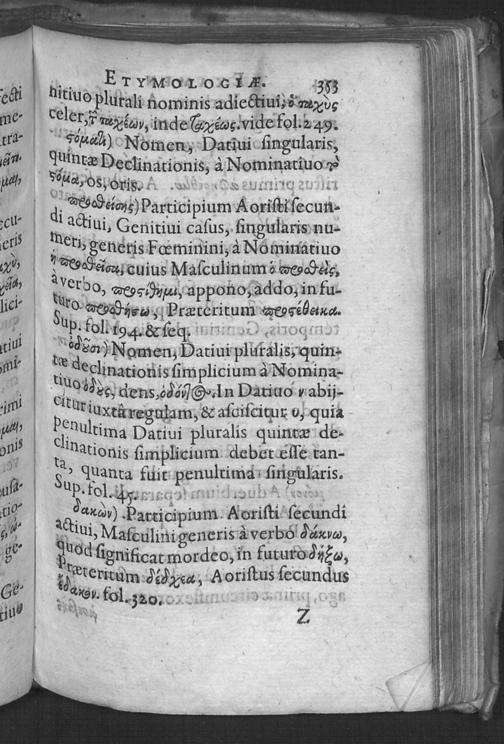 ETYMOLOGIÆ. 353
nitiuo plurali nominis adiectiui, ὁ ταχὺς
celer, τ̃ ταχέων, inde ταχέως. vide fol. 249.
στόματι) Nomen, Datiui singularis,
quintæ Declinationis, à Nominatiuo τὸ
στόμα, os, oris.
προσθείσης) Participium Aoristi secun-
di actiui, Genitiui casus, singularis nu-
meri, generis Fœminini, à Nominatiuo
ἡ προσθεῖσα, cuius Masculinum ὁ προσθεὶς,
à verbo, προστίθημι, appono, addo, in fu-
turo προσθήσω, Præteritum προστέθεικα.
Sup. fol. 194. & seq.
ὀδοῦσι) Nomen, Datiui pluralis, quin-
tæ declinationis simplicium à Nomina-
tiuo ὀδοὺς, dens, ὀδόντος. In Datiuo ν abij-
citur iuxta regulam, & asciscitur υ, quia
penultima Datiui pluralis quintæ de-
clinationis simplicium debet esse tan-
ta, quanta fuit penultima singularis.
Sup. fol. 45.
δακὼν) Participium Aoristi secundi
actiui, Masculini generis à verbo δάκνω,
quod significat mordeo, in futuro δήξω,
Præteritum δέδηχα, Aoristus secundus
ἔδακον. fol. 320.
Z